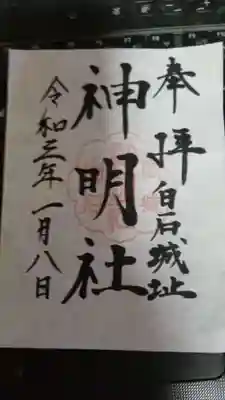 奉拝
白石城址
神明社
令和三年一月八日